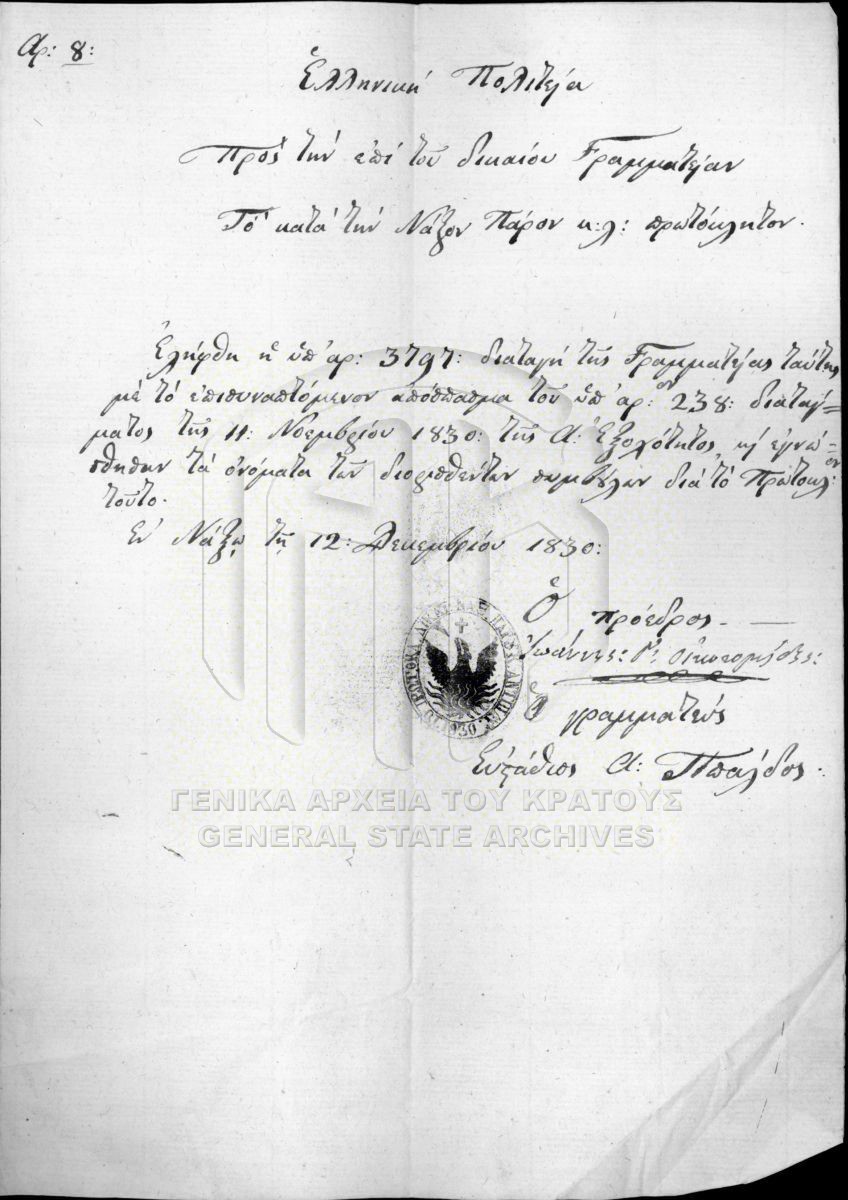 Αρ: 8:
Ἑλληνικὴ Πολιτεία
Πρὸς τὴν ἐπὶ τοῦ δικαίου Γραμματείαν
Τὸ κατὰ τὴν Νάξον Πάρον κ:λ: πρωτόκλητον.
Ἐλήφθη ἡ ὑπ' ἀρ: 3797: διαταγὴ τῆς Γραμματείας ταύτης
μὲ τὸ ἐπισυναπτόμενον ἀπόσπασμα τοῦ ὑπ' ἀρ: 238: διατάγ=
ματος τῆς 11: Νοεμβρίου 1830: τῆς Α: Ἐξοχότητος, κὶ ἐγνώ=
σθησαν τὰ ὀνόματα τῶν διορισθέντων συμβούλων διὰ τὸ Πρωτόκλ:ον
τοῦτο.
Ἐν Νάξῳ τῇ 12: Δεκεμβρίου 1830:
Ὁ πρόεδρος
Ἰωάννης:
Ὁ γραμματεὺς
Εὐστάθιος Α: Μπαλδος.
1830
ΓΕΝΙΚΑ ΑΡΧΕΙΑ ΤΟΥ ΚΡΑΤΟΥΣ
GENERAL STATE ARCHIVES